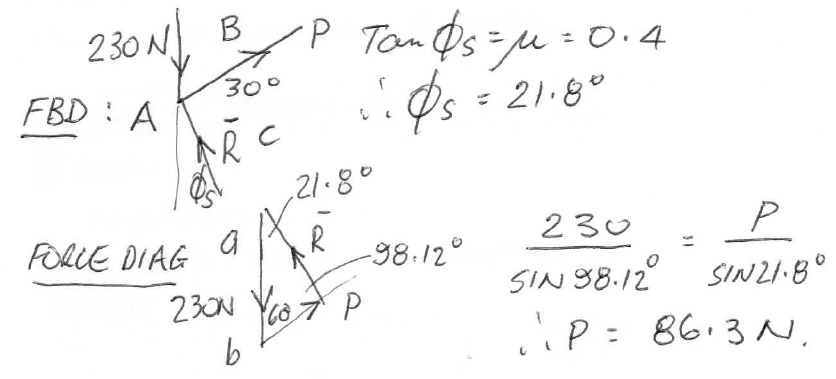 230N B P Tan ϕs = μ = 0.4
30°
FBD : A ∴ ϕs = 21.8°
R̄ C
ϕs
21.8°
FORCE DIAG a R̄ 98.12° 230/SIN 98.12° = P/SIN 21.8°
230N 60 P
b ∴ P = 86.3 N.